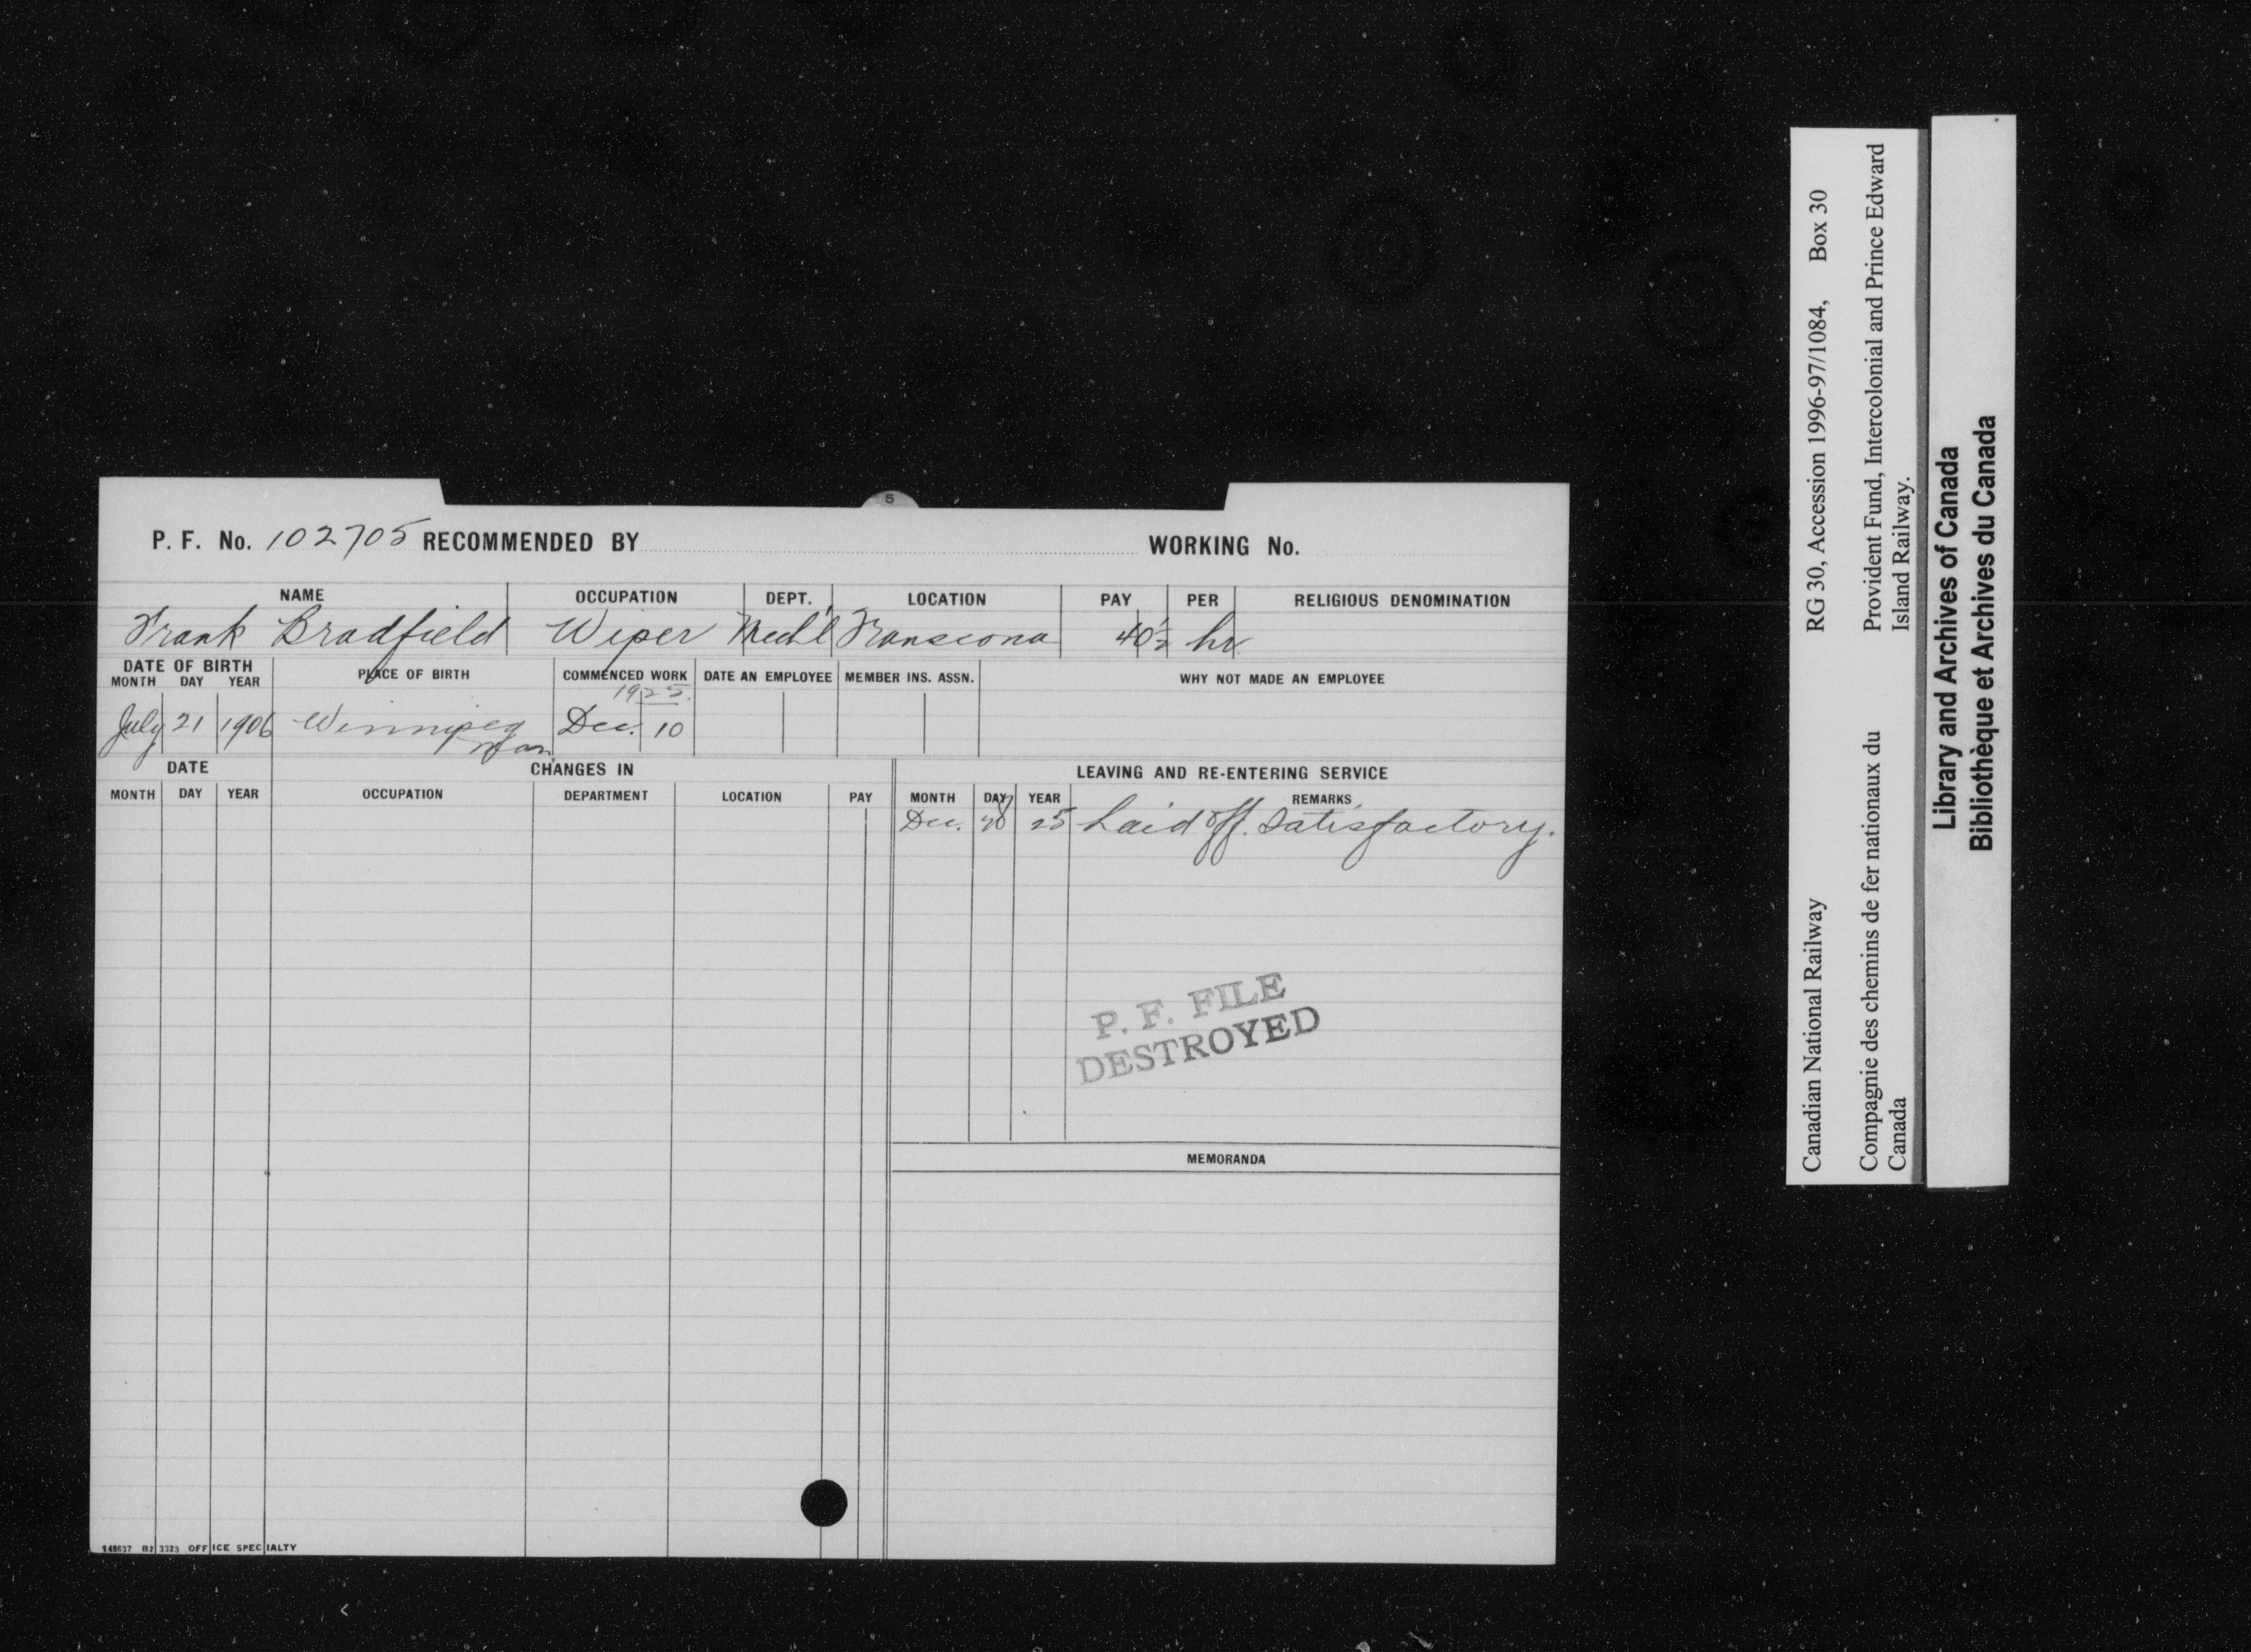 5
P. F. No. 102705 RECOMMENDED BY WORKING No.
NAME OCCUPATION DEPT. LOCATION PAY PER RELIGIOUS DENOMINATION
Frank Bradfield Wiper Mech'l Transcona 40½ hr
DATE OF BIRTH PLACE OF BIRTH COMMENCED WORK DATE AN EMPLOYEE MEMBER INS. ASSN. WHY NOT MADE AN EMPLOYEE
MONTH DAY YEAR
1925.
July 21 1906 Winnipeg Dec. 10
Man
DATE CHANGES IN LEAVING AND RE-ENTERING SERVICE
MONTH DAY YEAR OCCUPATION DEPARTMENT LOCATION PAY MONTH DAY YEAR REMARKS
Dec. 25 Laid off. Satisfactory.
P. F. FILE
DESTROYED
MEMORANDA
148637 B2 3323 OFFICE SPECIALTY
Canadian National Railway RG 30, Accession 1996-97/1084, Box 30
Compagnie des chemins de fer nationaux du Provident Fund, Intercolonial and Prince Edward
Canada Island Railway.
Library and Archives of Canada
Bibliothèque et Archives du Canada